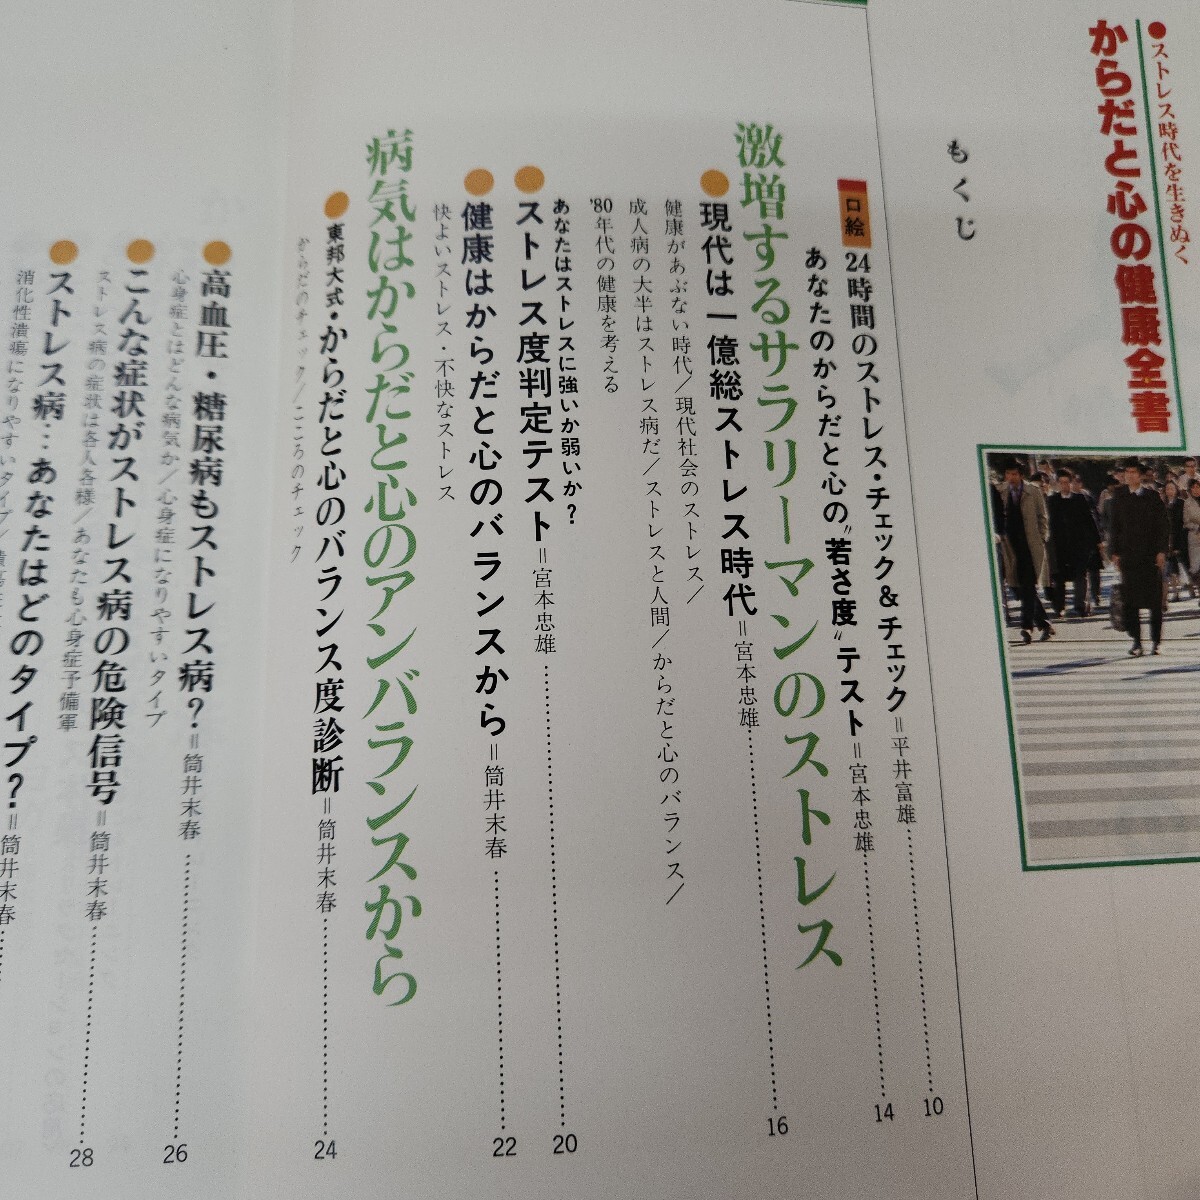 ●ストレス時代を生きぬく
からだと心の健康全書
もくじ
口絵
24時間のストレス・チェック&チェック=平井富雄 10
あなたのからだと心の〝若さ度〟テスト=宮本忠雄 14
激増するサラリーマンのストレス
●現代は一億総ストレス時代=宮本忠雄 16
健康があぶない時代/現代社会のストレス/
成人病の大半はストレス病だ/ストレスと人間/からだと心のバランス/
'80年代の健康を考える
あなたはストレスに強いか弱いか?
●ストレス度判定テスト=宮本忠雄 20
●健康はからだと心のバランスから=筒井末春 22
快よいストレス・不快なストレス
病気はからだと心のアンバランスから
●東邦大式・からだと心のバランス度診断=筒井末春 24
からだのチェック/こころのチェック
●高血圧・糖尿病もストレス病?=筒井末春 26
心身症とはどんな病気か/心身症になりやすいタイプ
●こんな症状がストレス病の危険信号=筒井末春 28
ストレス病の症状は各人各様/あなたも心身症予備軍
●ストレス病…あなたはどのタイプ?=筒井末春
消化性潰瘍になりやすいタイプ/